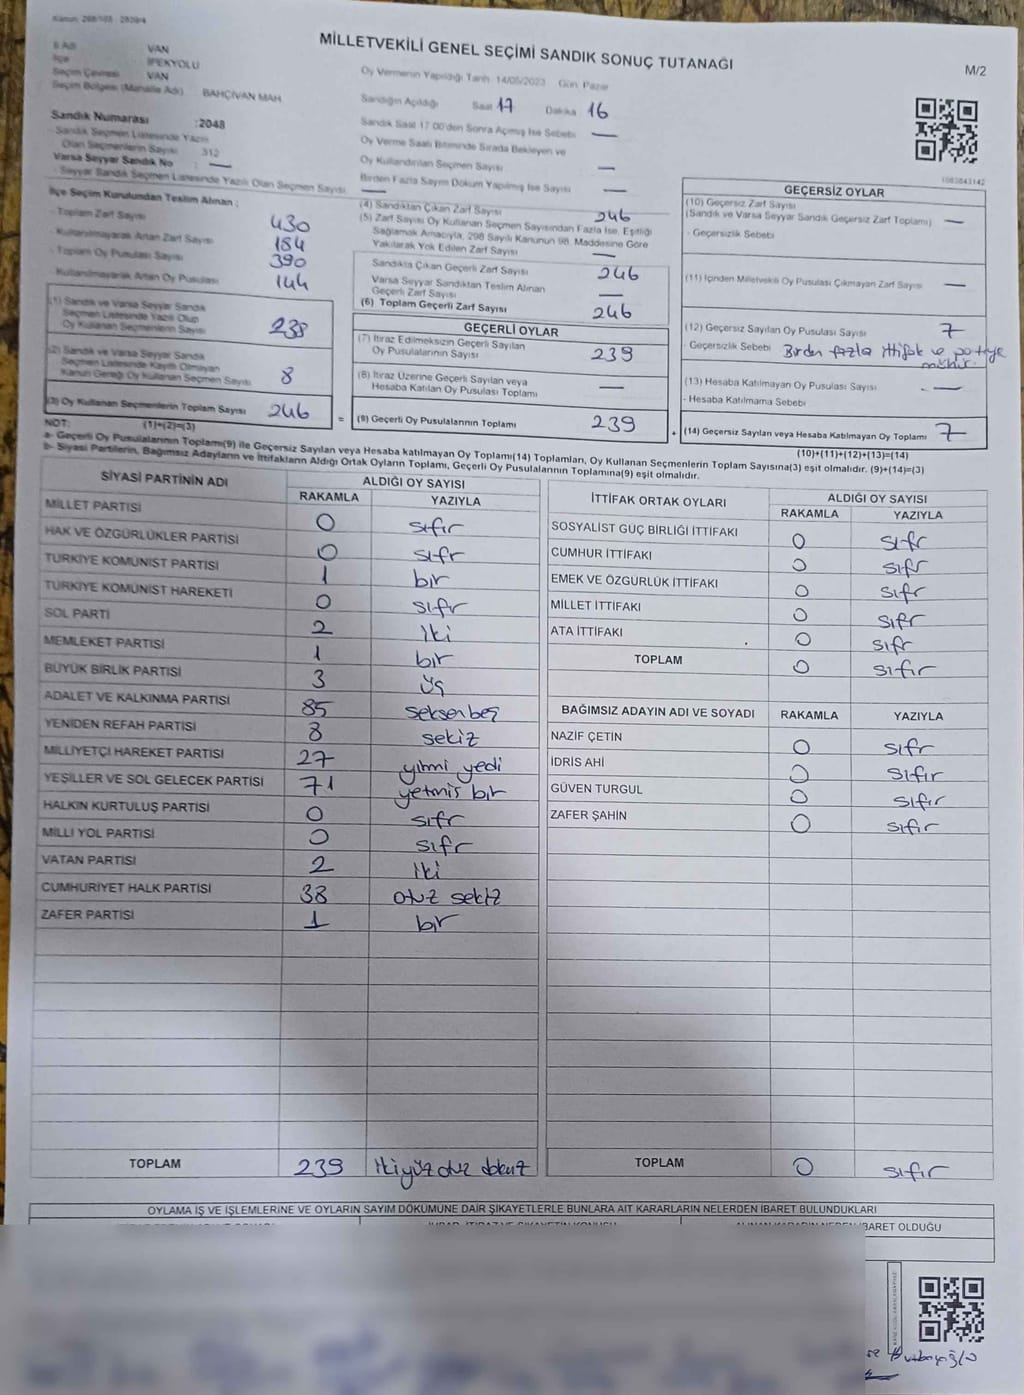 Kanun: 298/105 - 2839/4
MİLLETVEKİLİ GENEL SEÇİMİ SANDIK SONUÇ TUTANAĞI
M/2
İl Adı VAN
İlçe İPEKYOLU
Seçim Çevresi VAN
Seçim Bölgesi (Mahalle Adı) BAHÇIVAN MAH.
Oy Vermenin Yapıldığı Tarih: 14/05/2023 Gün: Pazar
Sandığın Açıldığı Saat 17 Dakika 16
Sandık Saat 17:00'den Sonra Açılmış İse Sebebi —
Oy Verme Saati Bitiminde Sırada Bekleyen ve
Oy Kullandırılan Seçmen Sayısı —
Birden Fazla Sayım Döküm Yapılmış İse Sayısı —
Sandık Numarası :2048
- Sandık Seçmen Listesinde Yazılı
Olan Seçmenlerin Sayısı : 312
Varsa Seyyar Sandık No : —
- Seyyar Sandık Seçmen Listesinde Yazılı Olan Seçmen Sayısı —
İlçe Seçim Kurulundan Teslim Alınan :
- Toplam Zarf Sayısı 430
- Kullanılmayarak Artan Zarf Sayısı 184
- Toplam Oy Pusulası Sayısı 390
- Kullanılmayarak Artan Oy Pusulası 144
(1) Sandık ve Varsa Seyyar Sandık
Seçmen Listesinde Yazılı Olup
Oy Kullanan Seçmenlerin Sayısı 238
(2) Sandık ve Varsa Seyyar Sandık
Seçmen Listesinde Kayıtlı Olmayan
Kanun Gereği Oy Kullanan Seçmen Sayısı 8
(3) Oy Kullanan Seçmenlerin Toplam Sayısı 246
(1)+(2)=(3)
(4) Sandıktan Çıkan Zarf Sayısı 246
(5) Zarf Sayısı Oy Kullanan Seçmen Sayısından Fazla İse, Eşitliği
Sağlamak Amacıyla, 298 Sayılı Kanunun 98. Maddesine Göre
Yakılarak Yok Edilen Zarf Sayısı —
Sandıkta Çıkan Geçerli Zarf Sayısı 246
Varsa Seyyar Sandıktan Teslim Alınan
Geçerli Zarf Sayısı —
(6) Toplam Geçerli Zarf Sayısı 246
GEÇERLİ OYLAR
(7) İtiraz Edilmeksizin Geçerli Sayılan
Oy Pusulalarının Sayısı 239
(8) İtiraz Üzerine Geçerli Sayılan veya
Hesaba Katılan Oy Pusulası Toplamı —
= (9) Geçerli Oy Pusulalarının Toplamı 239
1083843142
GEÇERSİZ OYLAR
(10) Geçersiz Zarf Sayısı
(Sandık ve Varsa Seyyar Sandık Geçersiz Zarf Toplamı) —
- Geçersizlik Sebebi
(11) İçinden Milletvekili Oy Pusulası Çıkmayan Zarf Sayısı —
(12) Geçersiz Sayılan Oy Pusulası Sayısı 7
- Geçersizlik Sebebi Birden fazla ittifak ve partiye
mühür.
(13) Hesaba Katılmayan Oy Pusulası Sayısı —
- Hesaba Katılmama Sebebi
+ (14) Geçersiz Sayılan veya Hesaba Katılmayan Oy Toplamı 7
(10)+(11)+(12)+(13)=(14)
NOT:
a- Geçerli Oy Pusulalarının Toplamı(9) ile Geçersiz Sayılan veya Hesaba katılmayan Oy Toplamı(14) Toplamları, Oy Kullanan Seçmenlerin Toplam Sayısına(3) eşit olmalıdır. (9)+(14)=(3)
b- Siyasi Partilerin, Bağımsız Adayların ve İttifakların Aldığı Ortak Oyların Toplamı, Geçerli Oy Pusulalarının Toplamına(9) eşit olmalıdır.
SİYASİ PARTİNİN ADI ALDIĞI OY SAYISI
RAKAMLA YAZIYLA
MİLLET PARTİSİ 0 sıfır
HAK VE ÖZGÜRLÜKLER PARTİSİ 0 sıfr
TÜRKİYE KOMÜNİST PARTİSİ 1 bir
TÜRKİYE KOMÜNİST HAREKETİ 0 sıfr
SOL PARTİ 2 iki
MEMLEKET PARTİSİ 1 bir
BÜYÜK BİRLİK PARTİSİ 3 üç
ADALET VE KALKINMA PARTİSİ 85 seksenbeş
YENİDEN REFAH PARTİSİ 8 sekiz
MİLLİYETÇİ HAREKET PARTİSİ 27 yirmi yedi
YEŞİLLER VE SOL GELECEK PARTİSİ 71 yetmiş bir
HALKIN KURTULUŞ PARTİSİ 0 sıfr
MİLLİ YOL PARTİSİ 0 sıfr
VATAN PARTİSİ 2 iki
CUMHURİYET HALK PARTİSİ 38 otuz sekiz
ZAFER PARTİSİ 1 bir
TOPLAM 239 ikiyüz otuz dokuz
İTTİFAK ORTAK OYLARI ALDIĞI OY SAYISI
RAKAMLA YAZIYLA
SOSYALİST GÜÇ BİRLİĞİ İTTİFAKI 0 sıfr
CUMHUR İTTİFAKI 0 sıfr
EMEK VE ÖZGÜRLÜK İTTİFAKI 0 sıfr
MİLLET İTTİFAKI 0 sıfr
ATA İTTİFAKI 0 sıfr
TOPLAM 0 sıfır
BAĞIMSIZ ADAYIN ADI VE SOYADI RAKAMLA YAZIYLA
NAZİF ÇETİN 0 sıfr
İDRİS AHİ 0 sıfır
GÜVEN TURGUL 0 sıfır
ZAFER ŞAHİN 0 sıfır
TOPLAM 0 sıfır
OYLAMA İŞ VE İŞLEMLERİNE VE OYLARIN SAYIM DÖKÜMÜNE DAİR ŞİKAYETLERLE BUNLARA AİT KARARLARIN NELERDEN İBARET BULUNDUKLARI
İBARET OLDUĞU